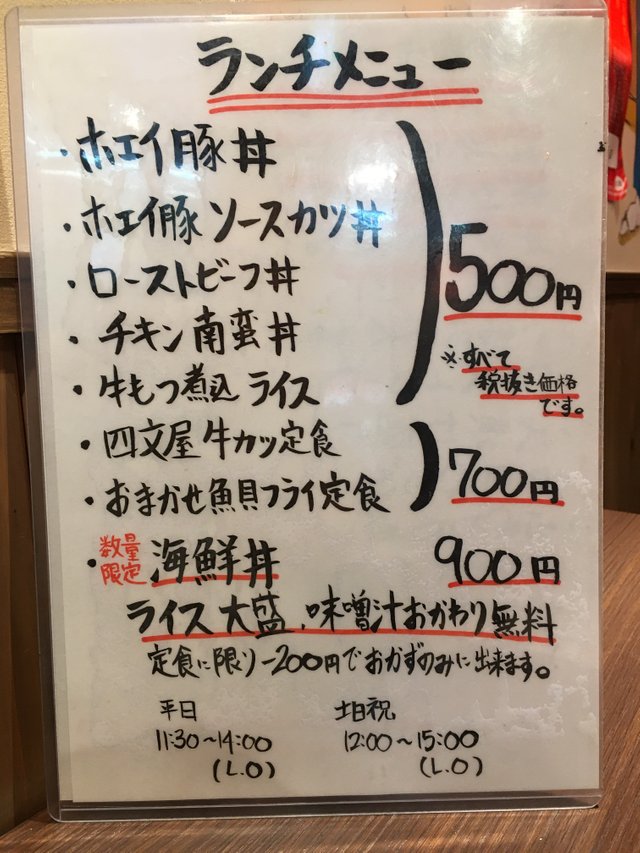 ランチメニュー
・ホエイ豚丼
・ホエイ豚ソースカツ丼
・ローストビーフ丼
・チキン南蛮丼
・牛もつ煮込ライス
500円
※すべて
税抜き価格
です。
・四文屋牛カツ定食
・おまかせ魚貝フライ定食
700円
・数量限定 海鮮丼 900円
ライス大盛、味噌汁おかわり無料
定食に限り-200円でおかずのみに出来ます。
平日 土日祝
11:30~14:00 12:00~15:00
(L.O) (L.O)